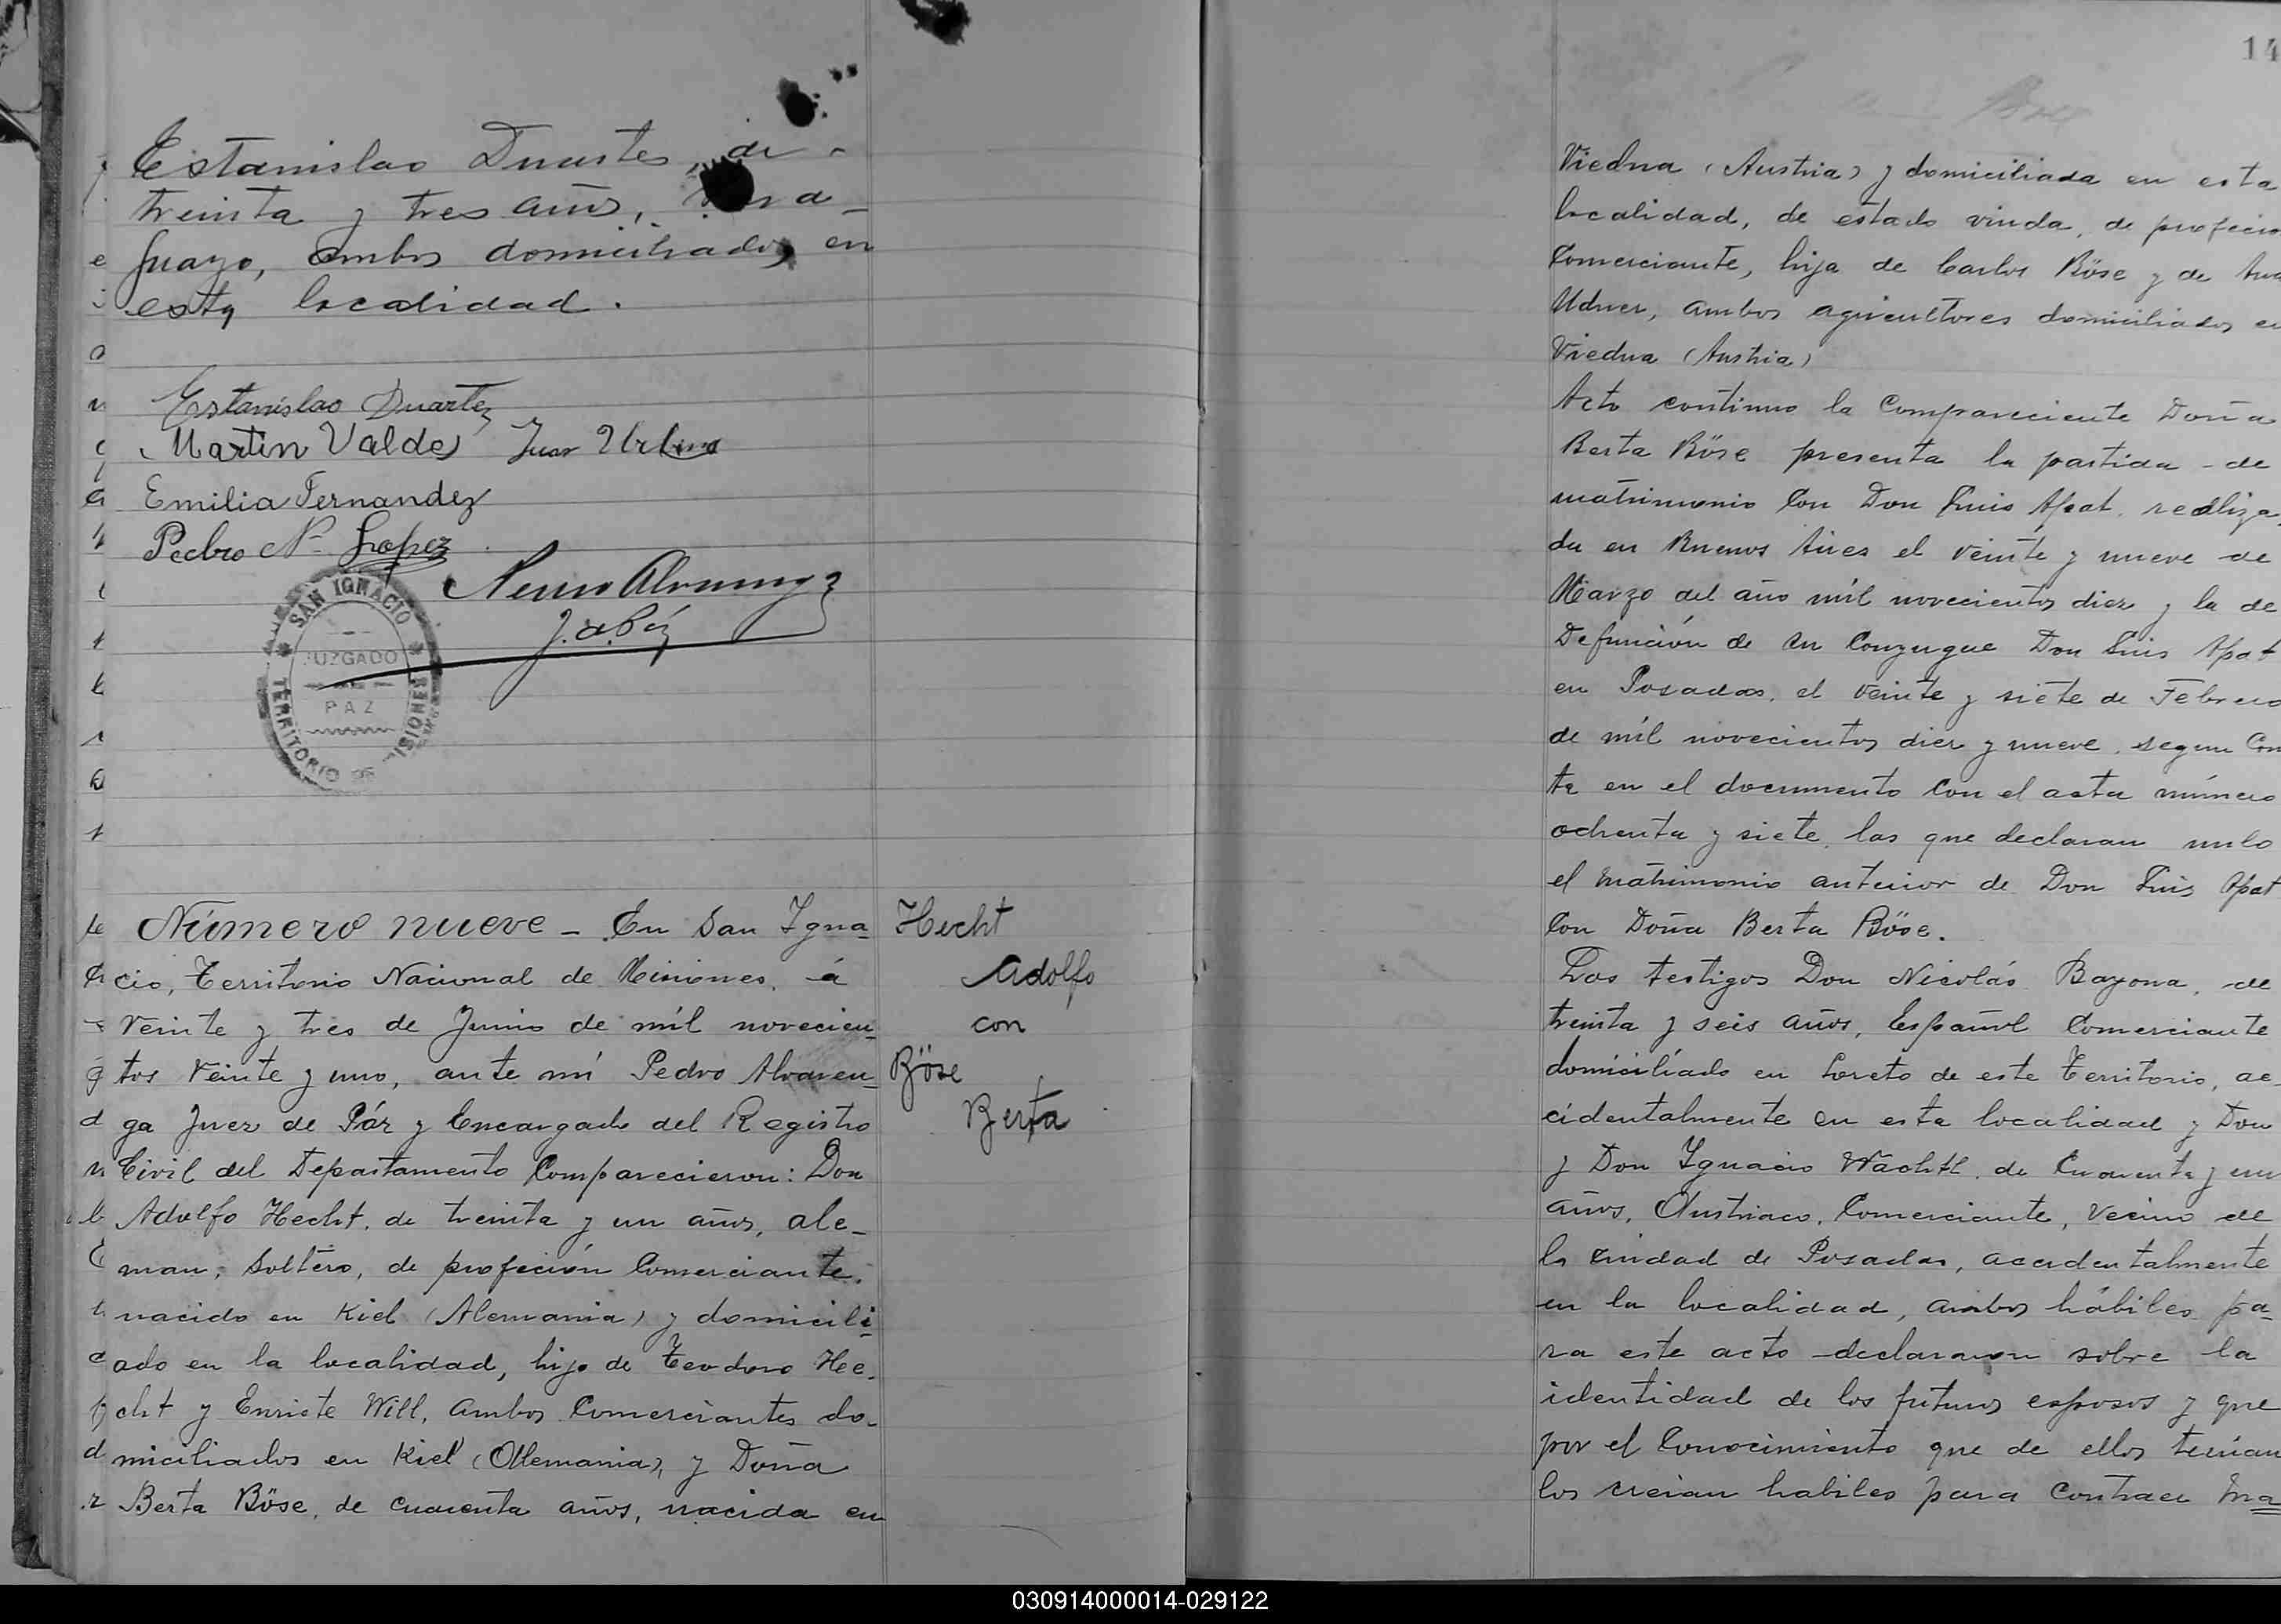 Estanislao Duarte, de
treinta y tres años,
guayo, ambos domiciliados en
esta localidad.
Estanislao Duarte
Martin Valdes Juan Urbina
Emilia Fernandez
Pedro N. Lopez
J. de Paz
SAN IGNACIO
JUZGADO
PAZ
TERRITORIO DE MISIONES
Número nueve - En San Igna-
cio, Territorio Nacional de Misiones, á
veinte y tres de Junio de mil novecien-
tos veinte y uno, ante mí Pedro Alvaren-
ga Juez de Páz y Encargado del Registro
Civil del Departamento Comparecieron: Don
Adolfo Hecht, de treinta y un años, ale-
man, soltero, de profeción Comerciante,
nacido en Kiel (Alemania) y domicili-
ado en la localidad, hijo de Teodoro He-
cht y Enriete Will, ambos Comerciantes do-
miciliados en Kiel (Allemania), y Doña
Berta Böse, de cuarenta años, nacida en
Hecht
Adolfo
con
Böse
Berta
14
Viedna (Austria) y domiciliada en esta
localidad, de estado viuda, de profecio
Comerciante, hija de Carlos Böse y de Ana
Udner, ambos agricultores domiciliados en
Viedna (Austria)
Acto continuo la Compareciente Doña
Berta Böse presenta la partida de
matrimonio Con Don Luis Apat, realiza-
da en Buenos Aires el veinte y nueve de
Marzo del año mil novecientos diez y la de
Defunción de su Conyugue Don Luis Apat
en Posadas, el veinte y siete de Febrero
de mil novecientos diez y nueve, segun Con
ta en el documento Con el acta número
ochenta y siete, las que declaran nulo
el matrimonio anterior de Don Luis Apat
Con Doña Berta Böse.
Los testigos Don Nicolás Bayona, de
treinta y seis años, Español Comerciante
domiciliado en Loreto de este Territorio, ac-
cidentalmente en esta localidad y Don
y Don Ignacio Wachtl, de Cuarenta y un
años, Austriaco, Comerciante, vecino de
la ciudad de Posadas, accidentalmente
en la localidad, ambos hábiles pa-
ra este acto declararon sobre la
identidad de los futuros esposos y que
por el Conocimiento que de ellos tenían
los creian habiles para Contraer Ma
030914000014-029122